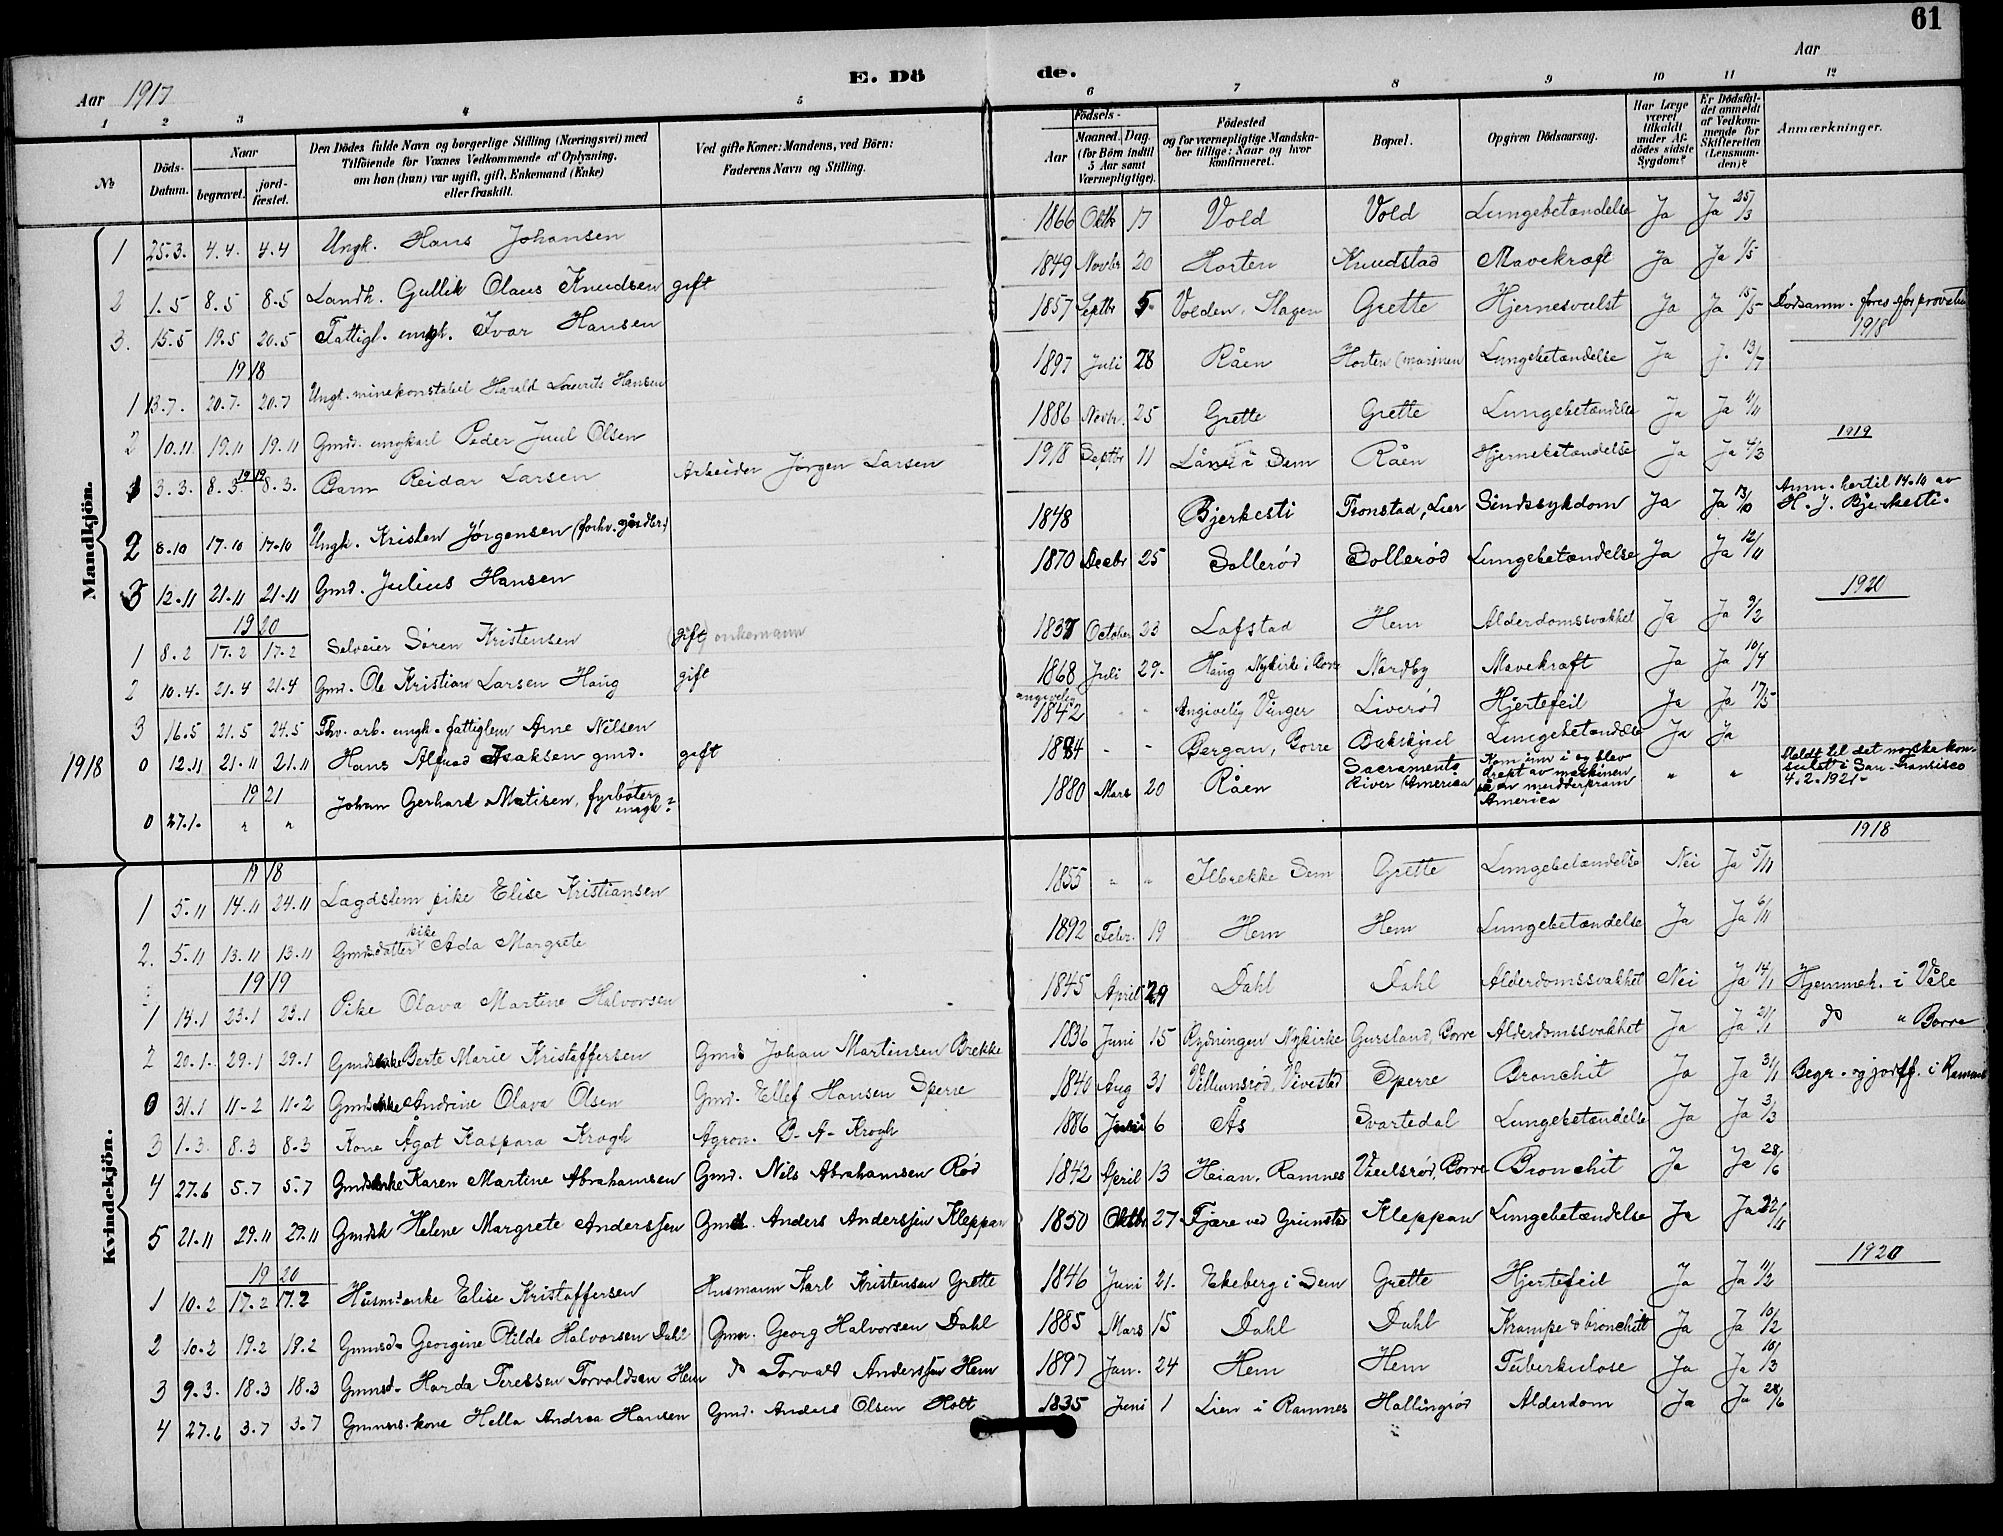 61
Aar 1917 E. Dö de. Aar
1 2 3 4 5 6 7 8 9 10 11 12
№ Döds-Datum. Naar begravet. jord-fæstet. Den Dödes fulde Navn og borgerlige Stilling (Næringsvei) med Tilföiende for Voxnes Vedkommende af Oplysning, om han (hun) var ugift, gift, Enkemand (Enke) eller fraskilt. Ved gifte Koner: Mandens, ved Börn: Faderens Navn og Stilling. Födsels- Aar Maaned. Dag. (for Börn indtil 5 Aar samt Værnepligtige). Födested og for værnepligtige Mandskaber tillige: Naar og hvor konfirmeret. Bopæl. Opgiven Dödsaarsag. Har Læge været tilkaldt under Afdödes sidste Sygdom? Er Dödsfaldet anmeldt af Vedkommende for Skifteretten (Lensmanden)? Anmærkninger.
Mandkjön.
1 25.3. 4.4. 4.4 Ungk. Hans Johansen 1866 Oktb 17 Vold Vold Lungebetændelse Ja Ja 25/3
2 1.5 8.5 8.5 Landh. Gullik Olaus Knudsen gift 1849 Novbr 20 Horten Knudstad Mavekræft Ja Ja 1/5
3. 15.5 19.5 20.5 Fattigl. ungk. Ivar Hansen 1857 Septbr 5 Volden, Slagen Grette Hjernesvulst Ja Ja 15/5 Dødsanm.
1918 1918
1 13.7. 20.7. 20.7 Ungk. minekonstabel Harald Laurits Hansen 1897 Juli 28 Råen Horten (marinen Lungebetændelse Ja J. 13/7
2 10.11 19.11 19.11 Gmd. ungkarl Peder Juul Olsen 1886 Novbr. 25 Grette Grette Lungebetændelse Ja Ja 11/11
1919 1919
1 3.3. 8.3. 8.3. Barn Reidar Larsen Arbeider Jørgen Larsen 1918 Septbr 11 i Sem Råen Hjernebetændelse Ja Ja 4/3
2 8.10 17.10 17.10 Ungk. Kristen Jørgensen (forhv. gårdbr.) 1848 Bjerkesti Tronstad, Lier Sindssykdom Ja Ja 13/10 Anm. hertil 14.10 av H. J. Bjerkesti.
3 12.11 21.11 21.11 Gmd. Julius Hansen 1870 Decbr 25 Sollerød Sollerød Lungebetændelse Ja Ja 12/11
1920 1920
1 8.2 17.2 17.2 Selveier Søren Kristensen (gift) enkemann 1837 October 23 Lofstad Hem Alderdomssvakhet Ja Ja 9/2
2 10.4. 21.4 21.4 Gmd. Ole Kristian Larsen Haug gift 1868 Juli 29. Haug Nykirke i Borre Nordby Mavekræft Ja Ja 10/4
3 16.5 21.5 24.5 Fhv. arb. ungk. fattiglem Arne Nilsen angivelig 1842 - - Angivelig Vånger Liverød Hjertefeil Ja Ja 17/5
1918 0 12.11 21.11 21.11 Hans Alfred Isaksen gmd. gift 1884 - - Bergan, Borre Bakskjul Lungebetændelse Ja Ja
1921
0 27.1. " " Johan Gerhard Matisen, fyrbøter ungk? 1880 Mars 20 Råen Sacramento River America Kom inn i og blev drept av maskinen på en mudderpram America " " Meldt til det norske konsulat i San Fransisco 4.2.1921.
Kvindekjön.
1918 1918
1 5.11 14.11 24.11 Lægdslem pike Elise Kristiansen 1855 " " Ilbrekke Sem Grette Lungebetændelse Nei Ja 5/11
2. 5.11 13.11 13.11 Gmdsdatter pike Ada Margrete 1892 Febr. 19 Hem Hem Lungebetændelse Ja Ja 6/11
1919
1 14.1 23.1 23.1 Pike Olava Martine Halvorsen 1845 April 29 Dahl Dahl Alderdomssvakhet Nei Ja 14/1 Hjemmeh. i Våle
2 20.1. 29.1 29.1 Gmdsenke Berte Marie Kristoffersen Gmds Johan Martinsen Brekke 1836 Juni 15 Rydningen Nykirke Gursland, Borre Alderdomssvakhet Ja Ja 21/1 do " Borre
0 31.1 11-2 11-2 Gmdsenke Andrine Olava Olsen Gmd. Ellef Hansen Sperre 1840 Aug 31 Villumsrød, Vivestad Sperre Bronchit Ja Ja 31/1 Begr. og jordf. i Ramnes
3 1.3. 8.3 8.3 Kone Ågot Kaspara Krogh Agron. B. A. Krogh 1886 Juni 6 Ås Svartedal Lungebetændelse Ja Ja 3/3
4 27.6 5.7 5.7 Gmdsenke Karen Martine Abrahamsen Gmd. Nils Abrahamsen Rød 1842 April 13 Heian, Ramnes Borre Bronchit Ja Ja 28/6
5 21.11 29.11 29.11 Gmdsk Helene Margrete Anderssen Gmd. Anders Anderssen Kleppan 1850 Oktbr 27 Fjære ved Grimstad Kleppan Lungebetændelse Ja Ja 22/11
1920 1920
1 10.2 17.2 17.2 Husm.enke Elise Kristoffersen Husmann Karl Kristensen Grette 1846 Juni 21. Ekeberg i Sem Grette Hjertefeil Ja Ja 11/2
2 10.2 19.2 19.2 Gmmsd. Georgine Otilde Halvorsen Dahl Gmn. Georg Halvorsen Dahl 1885 Mars 15 Dahl Dahl Krampe & bronchitt Ja Ja 10/2
3 9.3. 18.3 18.3 Gmmsd. Harda Teressen Torvaldsen Hem do Torvald Anderssen Hem 1897 Jan. 24 Hem Hem Tuberkulose Ja Ja 10/3
4 27.6 3.7 3.7 Gmmns.kone Hella Andrea Hansen Gmd. Anders Olsen Holt 1835 Juni 1 Lien i Ramnes Hallingrød Alderdom Ja Ja 28/6